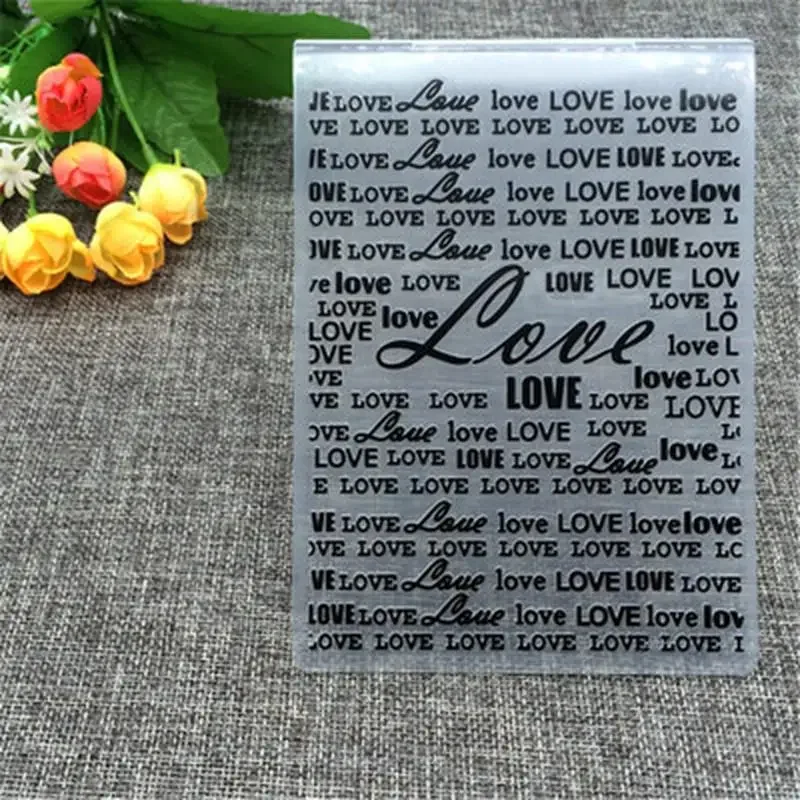 VE LOVE Love love LOVE love love
VE LOVE LOVE LOVE LOVE LOVE LO
VE LOVE Love love LOVE LOVE LOVE
OVE LOVE Love love LOVE love lov
OVE LOVE LOVE LOVE LOVE LOVE L
OVE LOVE Love love LOVE LOVE LOVE
love LOVE LOVE LOVE LOV
LOVE LOVE L
LOVE love Love LO
OVE love L
VE love LOV
VE LOVE LOVE LOVE LOVE LOVE
OVE Love love LOVE LOVE L
LOVE LOVE LOVE LOVE Love love L
E LOVE LOVE LOVE LOVE LOVE LOV
VE LOVE Love love LOVE love love
OVE LOVE LOVE LOVE LOVE LOVE LO
OVE LOVE Love love LOVE LOVE LOVE
LOVE LOVE Love love LOVE love lov
LOVE LOVE LOVE LOVE LOVE LOVE